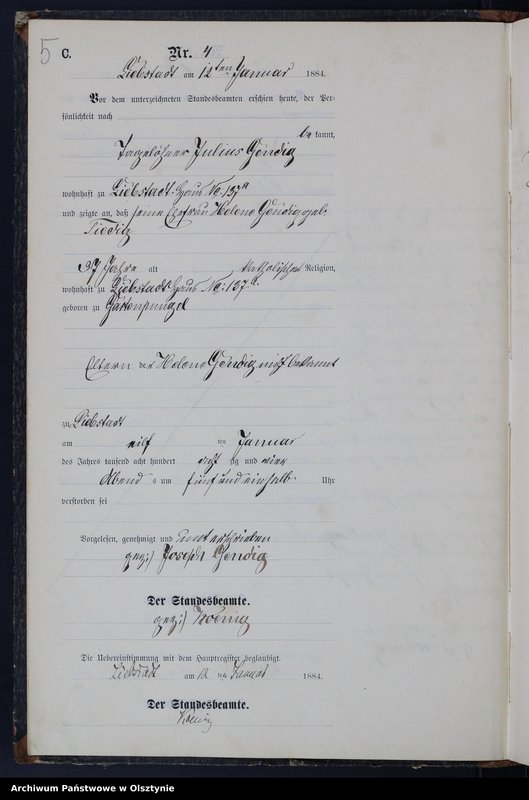 5
C.
Nr. 4
Liebstadt am 12ten Januar 1884.
Vor dem unterzeichneten Standesbeamten erschien heute, der Per-
sönlichkeit nach
be kannt,
Tagelöhner Julius Gendig
wohnhaft zu Liebstadt Haus No: 137a
und zeigte an, daß seine Ehefrau Helene Gendig geb.
37 Jahre alt katholischer Religion,
wohnhaft zu Liebstadt Haus No: 137a.
geboren zu
Eltern der Helene Gendig nicht bekannt
zu Liebstadt
am eilf ten Januar
des Jahres tausend acht hundert acht zig und vier
Abend s um fünf und einhalb Uhr
verstorben sei
Vorgelesen, genehmigt und unterschrieben
gez:) Joseph Gendig
Der Standesbeamte.
gez:) Koenig
Die Uebereinstimmung mit dem Hauptregister beglaubigt.
Liebstadt am 12 ten Januar 1884.
Der Standesbeamte.
Koenig
Archiwum Państwowe w Olsztynie